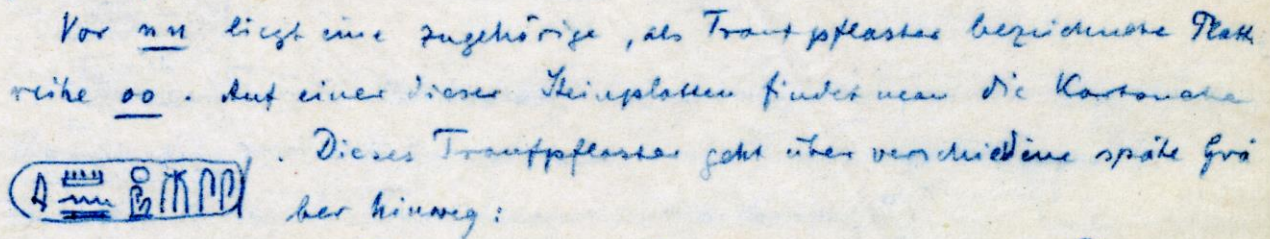 Vor nn liegt eine zugehörige, als Traufpflaster bezeichnete Platten
reihe oo. Auf einer dieser Steinplatten findet man die Kartouche
. Dieses Traufpflaster geht über verschiedene späte Grä
ber hinweg: